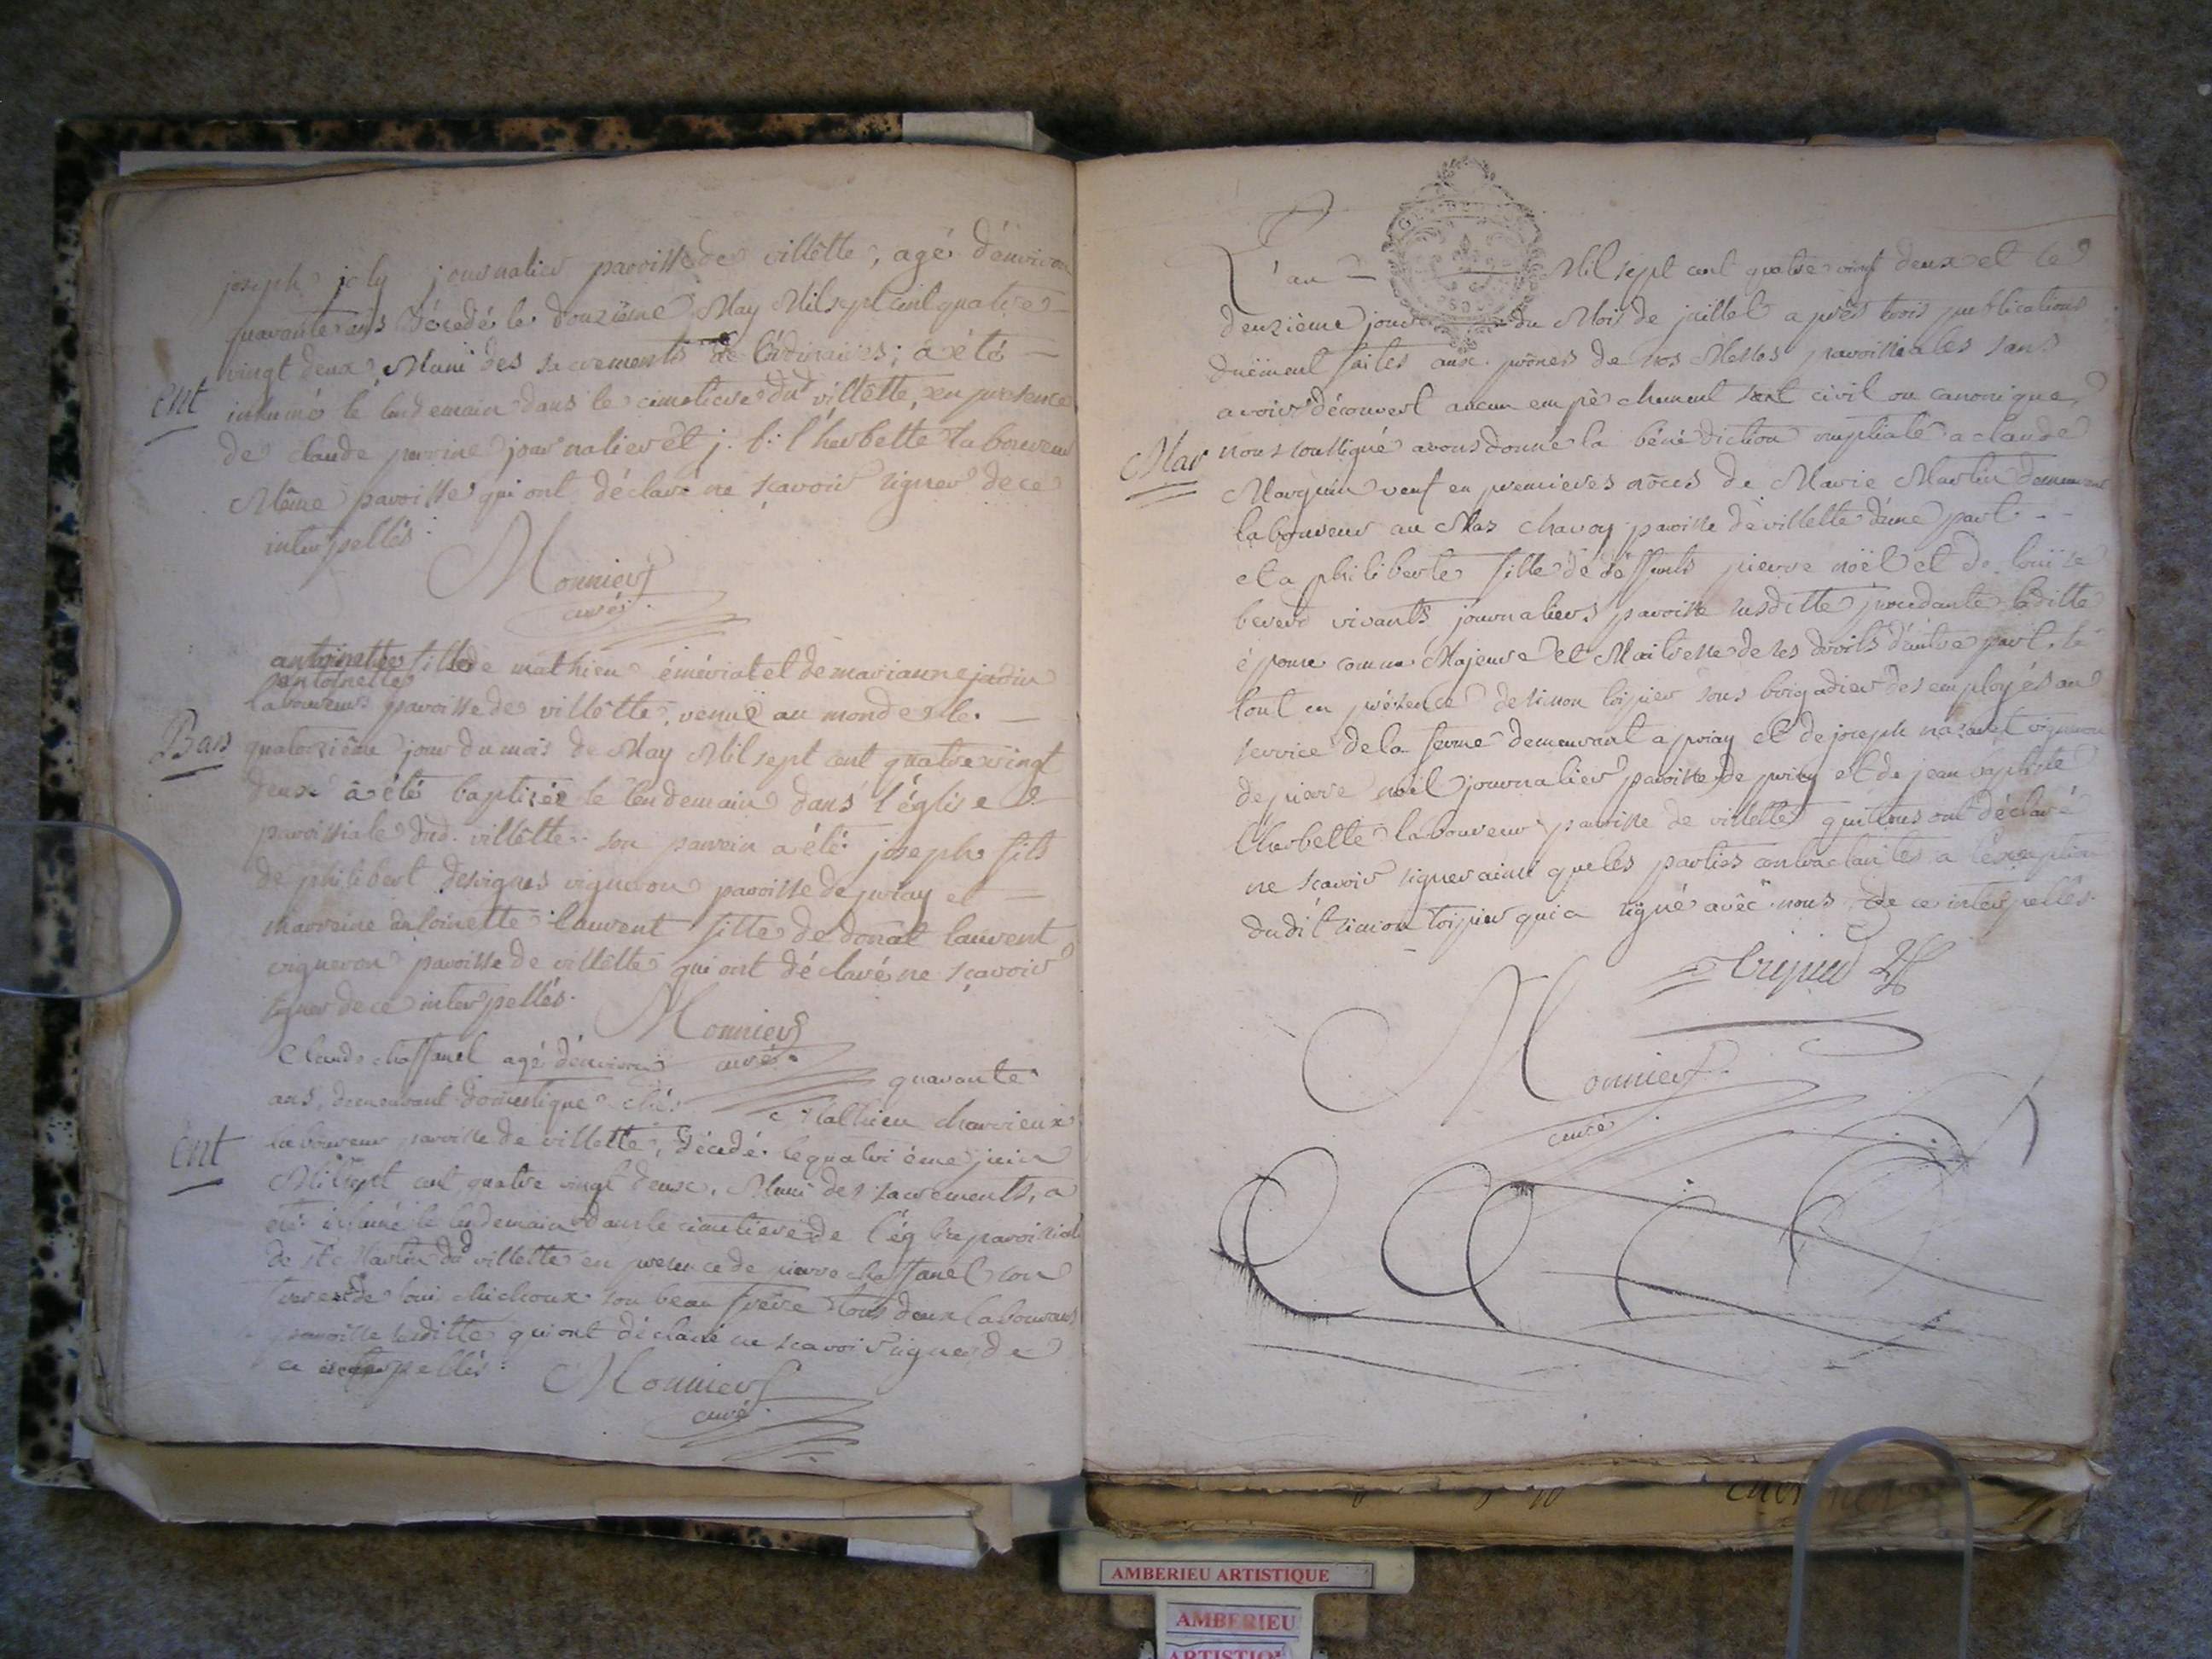 joseph joly journalier paroisse de villétte, agé d'environ
quarante ans décédé le douzième May Mil sept cent quatre
vingt deux, Muni des sacrements de l'ordinaires; a été
ent
inhumé le lendemain dans le cimetiere dud villétte, en presence
de claude perrine journalier et j. b. l'herbette laboureur
Même paroisse qui ont déclaré ne sçavoir signer de ce
interpellés.
Monnier
curé.
antoinette fille de mathieu émériat et de marianne jadin
antoinette
laboureurs paroisse de villétte, venuë au monde le
Bap
quatorzième jour du mois de May Mil sept cent quatre vingt
deux a été baptizée le lendemain dans l'église
paroissiale dud. villétte. son parrein a été joseph fils
de philibert desvignes vigneron paroisse de priay et
marreine antoinette laurent fille de donat laurent
vigneron paroisse de villétte qui ont déclaré ne sçavoir
signer de ce interpellés.
Monnier
curé.
Claude chaffanel agé d'environ quarante
ans, demeurant domestique chés Mathieu charvieux
ent
laboureur paroisse de villette, décédé le quatrième juin
Mil sept cent quatre vingt deux, Muni des sacrements, a
été inhumé le lendemain dans le cimetiere de l'églize paroissial
de st Martin dud villette en presence de pierre chaffanel son
frere et de loui chichoux son beau frère tous deux laboureurs
paroisse susditte qui ont déclaré ne scavoir signer de
ce interpellés.
Monnier
curé.
L'an Mil sept cent quatre vingt deux et le
deuzième jour du Mois de juillet après trois publications
duëment faites aux prônes de nos Messes paroissiales sans
avoir découvert aucun empêchement civil ou canonique
Mar
nous soussigné avons donné la bénédiction nuptiale a claude
Marquin veuf en premieres nôces de Marie Martin demeurant
laboureur au Mas chavoy paroisse de villette d'une part.
et a philiberte fille de deffunts pierre noël et de louïse
bererd vivants journaliers paroisse susditte procedante laditte
épouse comme Majeure et Maitresse de ses droits d'autre part. le
tout en présence de simon loipier sous brigadier des employés au
service de la ferme demeurant a priay et de joseph vigneron
de pierre noël journalier paroisse de priay et de jean baptiste
l'herbette laboureur paroisse de villette qui tous ont déclaré
ne scavoir signer ainsi que les parties contractantes a l'exception
dudit simon loipier qui a signé avec nous de ce interpellés.
Monnier
curé.
AMBERIEU ARTISTIQUE
AMBERIEU
ARTISTIQUE